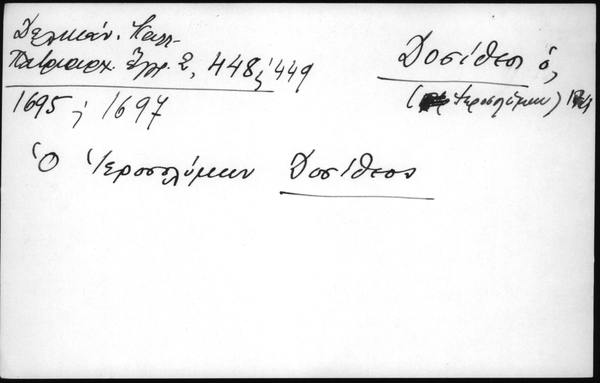 Δελικάν. Καλλ-
Πατριαρχ. Έγγρ. 2, 448 ; 449
1695 ; 1697
Δοσίθεος ὁ,
( Ἱεροσολύμων)
Ὁ Ἱεροσολύμων Δοσίθεος